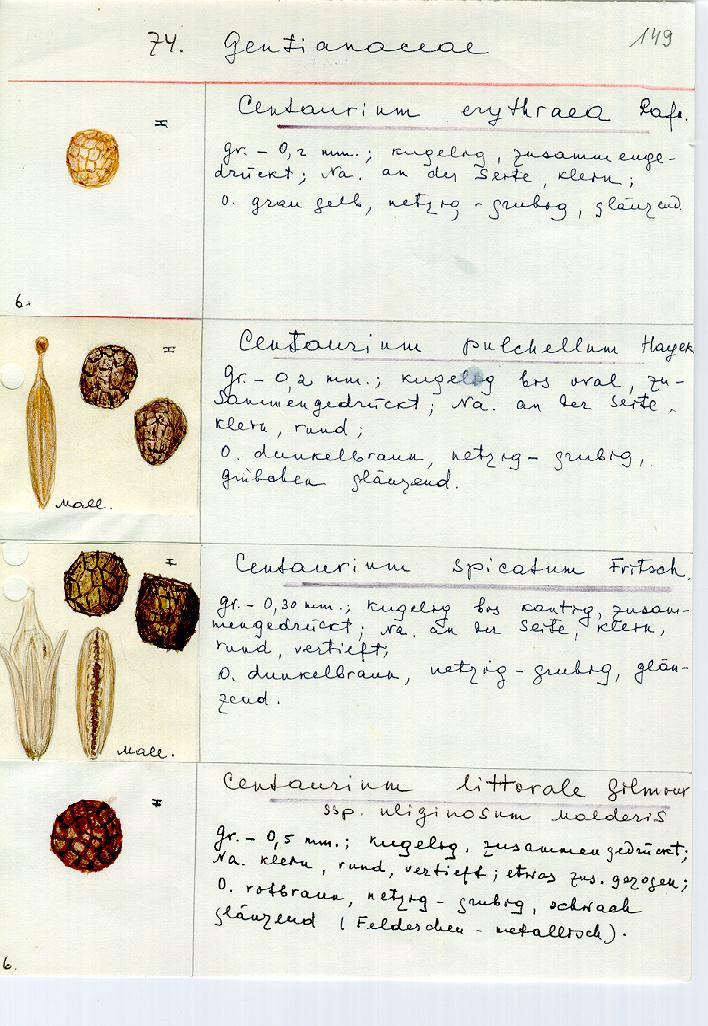 74. Gentianaceae
149
Centaurium erythraea Rafn.
gr. - 0,2 mm.; kugelig, zusammenge-
drückt; Na. an der Seite, klein;
O. grau gelb, netzig - grubig, glänzend.
6.
Centaurium pulchellum Hayek
gr. - 0,2 mm.; kugelig bis oval, zu-
sammengedrückt; Na. an der Seite,
klein, rund;
O. dunkelbraun, netzig - grubig,
grübchen glänzend.
Mall.
Centaurium spicatum Fritsch.
gr. - 0,30 mm.; kugelig bis kantig, zusam-
mengedrückt; Na. an der Seite, klein,
rund, vertieft;
O. dunkelbraun, netzig - grubig, glän-
zend.
Mall.
Centaurium littorale Gilmour
ssp. uliginosum Malderis
gr. - 0,5 mm.; kugelig, zusammengedrückt;
Na. klein, rund, vertieft; etwas zus. gezogen;
O. rotbraun, netzig - grubig, schwach
glänzend (Felderchen - metallisch).
6.